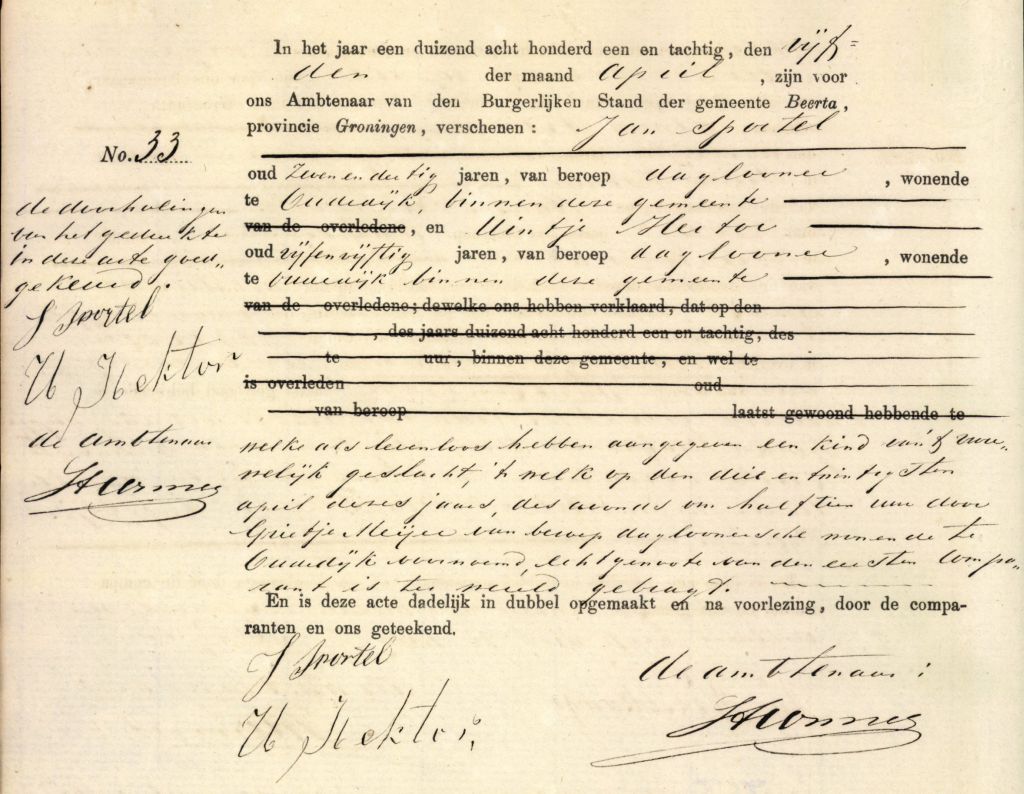 In het jaar een duizend acht honderd een en tachtig, den vijf=
den der maand April, zijn voor
ons Ambtenaar van den Burgerlijken Stand der gemeente Beerta,
provincie Groningen, verschenen: Jan Sportel
No. 33
oud Zeven en dertig jaren, van beroep daglooner, wonende
te Oudedijk, binnen deze gemeente
van de overledene, en Uintje Hector
oud vijfenvijftig jaren, van beroep daglooner, wonende
te Oudedijk binnen deze gemeente
van de overledene; dewelke ons hebben verklaard, dat op den
, des jaars duizend acht honderd een en tachtig, des
te uur, binnen deze gemeente, en wel te
is overleden oud
van beroep laatst gewoond hebbende te
welke als levenloos hebben aangegeven een kind van 't vrou„
welijk geslacht, 't welk op den drie en twintigsten
april dezes jaars, des avonds om half tien uur door
Grietje Meijer van beroep dagloonersche wonende te
Oudedijk voornoemd, echtgenoote van den eersten compa„
rant is ter wereld gebragt.
En is deze acte dadelijk in dubbel opgemaakt en na voorlezing, door de compa-
ranten en ons geteekend.
J Sportel
U Hektor
de ambtenaar:
de doorhalingen
van het gedrukte
in deze acte goed„
gekeurd.
J Sportel
U Hektor
de ambtenaar